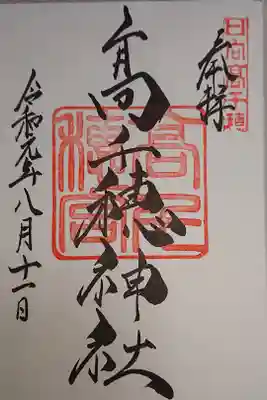 日向高千穂
奉拝
高千穂神社
高千穂宮
令和元年八月十一日